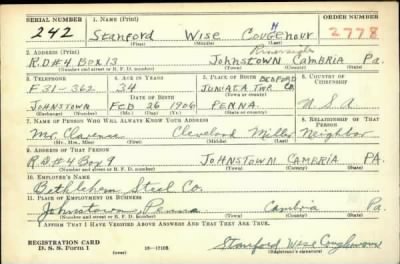 SERIAL NUMBER 1. NAME (Print) ORDER NUMBER
242 Stanford Wise Coughenour 2778
(First) (Middle) (Last)
2. ADDRESS (Print) Riverside
R.D.#4 Box 13 Johnstown Cambria Pa.
(Number and street or R. F. D. number) (Town) (County) (State)
3. TELEPHONE 4. AGE IN YEARS 5. PLACE OF BIRTH 6. COUNTRY OF CITIZENSHIP
F 31-362 34 BEDFORD Co.
DATE OF BIRTH JUNIATA TWP.
JOHNSTOWN FEB 26 1906 PENNA. U.S.A
(Exchange) (Number) (Mo.) (Day) (Yr.) (State or country)
7. NAME OF PERSON WHO WILL ALWAYS KNOW YOUR ADDRESS 8. RELATIONSHIP OF THAT PERSON
Mr. Clarence Cleveland Miller Neighbor
(Mr., Mrs., Miss) (First) (Middle) (Last)
9. ADDRESS OF THAT PERSON
R.D.#4 Box 9 JOHNSTOWN CAMBRIA PA.
(Number and street or R. F. D. number) (Town) (County) (State)
10. EMPLOYER'S NAME
Bethlehem Steel Co.
11. PLACE OF EMPLOYMENT OR BUSINESS
Johnstown, Penna Cambria Pa.
(Number and street or R. F. D. number) (Town) (County) (State)
I AFFIRM THAT I HAVE VERIFIED ABOVE ANSWERS AND THAT THEY ARE TRUE.
REGISTRATION CARD
D. S. S. Form 1 (over) 16—17105 Stanford Wise Coughenour